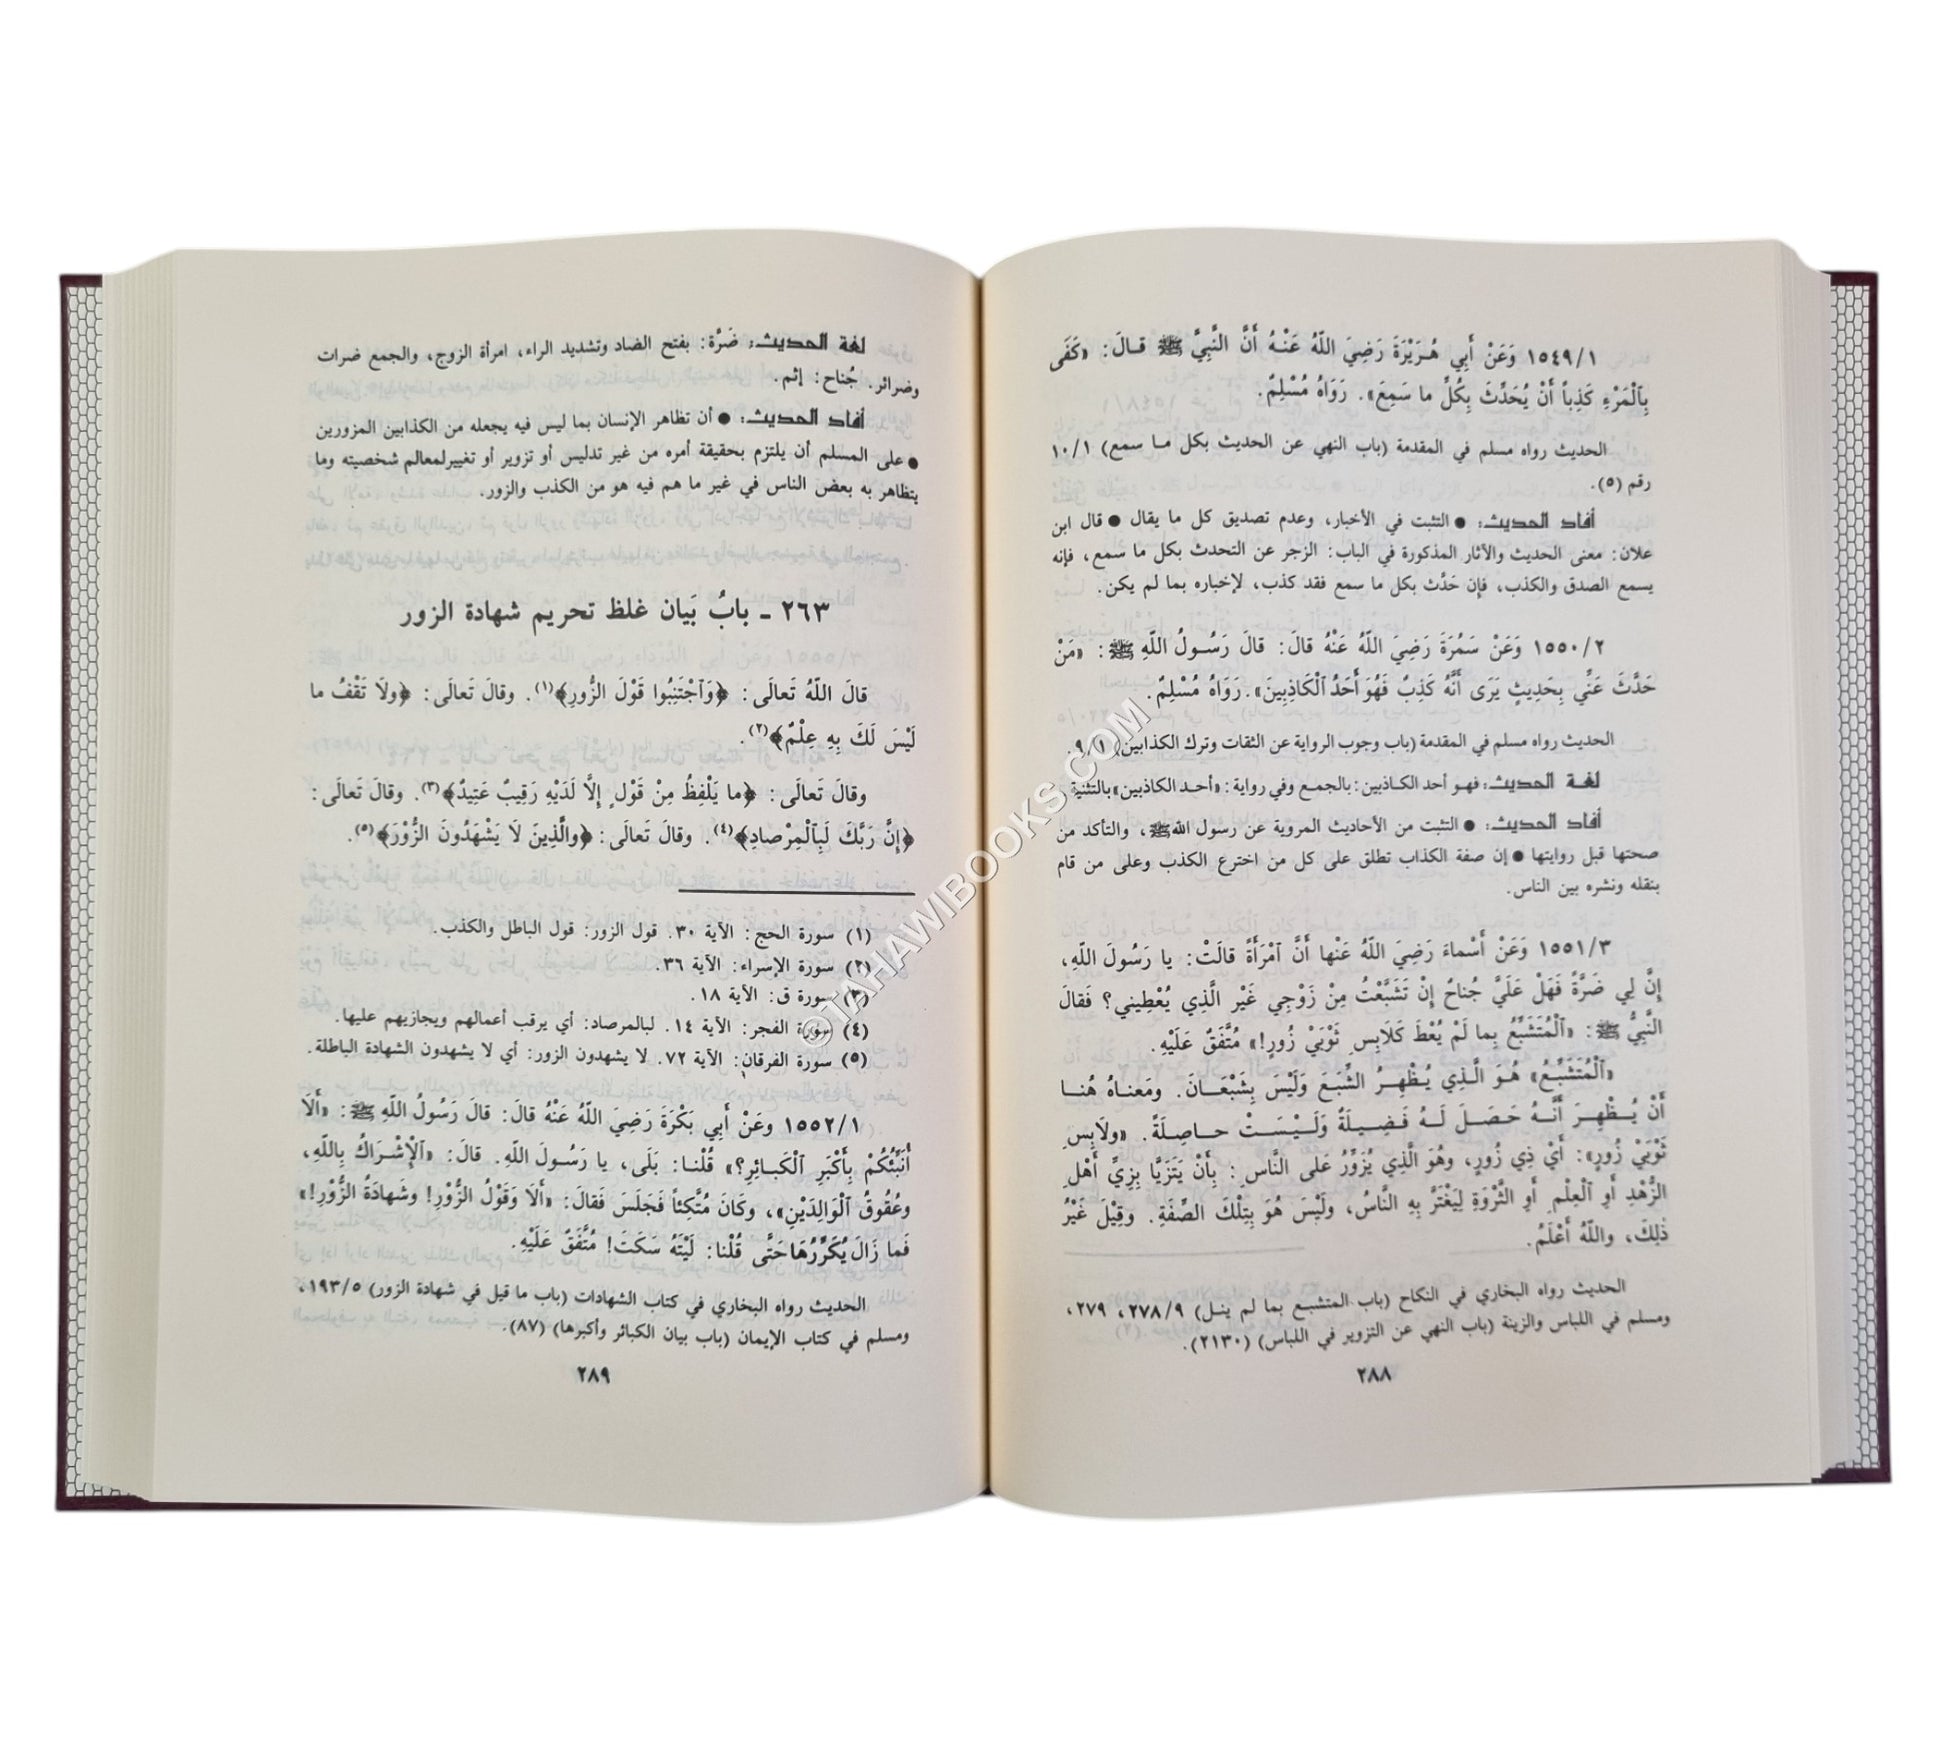 ١٥٤٩/١ وَعَنْ أَبِي هُرَيْرَةَ رَضِيَ اللّهُ عَنْهُ أَنَّ النَّبِيَّ ﷺ قالَ: «كَفَى
بِٱلْمَرْءِ كَذِباً أَنْ يُحَدِّثَ بِكُلِّ ما سَمِعَ». رَوَاهُ مُسْلِمٌ.
الحديث رواه مسلم في المقدمة (باب النهي عن الحديث بكل ما سمع) ١٠/١
رقم (٥).
أفاد الحديث: ● التثبت في الأخبار، وعدم تصديق كل ما يقال ● قال ابن
علان: معنى الحديث والآثار المذكورة في الباب: الزجر عن التحدث بكل ما سمع، فإنه
يسمع الصدق والكذب، فإن حَدَّث بكل ما سمع فقد كذب، لإخباره بما لم يكن.
١٥٥٠/٢ وَعَنْ سَمُرَةَ رَضِيَ اللّهُ عَنْهُ قالَ: قالَ رَسُولُ اللّهِ ﷺ: «مَنْ
حَدَّثَ عَنِّي بِحَدِيثٍ يَرَى أَنَّهُ كَذِبٌ فَهُوَ أَحَدُ ٱلْكَاذِبِينَ». رَوَاهُ مُسْلِمٌ.
الحديث رواه مسلم في المقدمة (باب وجوب الرواية عن الثقات وترك الكذابين) ٩/١.
لغة الحديث: فهو أحد الكاذبين: بالجمع وفي رواية: «أحد الكاذبين» بالتثنية
أفاد الحديث: ● التثبت من الأحاديث المروية عن رسول الله ﷺ، والتأكد من
صحتها قبل روايتها ● إن صفة الكذاب تطلق على كل من اخترع الكذب وعلى من قام
بنقله ونشره بين الناس.
١٥٥١/٣ وَعَنْ أَسْماءَ رَضِيَ اللّهُ عَنْها أَنَّ ٱمْرَأَةً قالَتْ: يا رَسُولَ اللّهِ،
إِنَّ لِي ضَرَّةً فَهَلْ عَلَيَّ جُناحٌ إِنْ تَشَبَّعْتُ مِنْ زَوْجِي غَيْرَ الَّذِي يُعْطِيني؟ فَقالَ
النَّبِيُّ ﷺ: «ٱلْمُتَشَبِّعُ بِما لَمْ يُعْطَ كَلَابِسِ ثَوْبَيْ زُورٍ!» مُتَّفَقٌ عَلَيْهِ.
«ٱلْمُتَشَبِّعُ» هُوَ الَّذِي يُظْهِرُ الشِّبَعَ وَلَيْسَ بِشَبْعَانَ. ومَعناهُ هُنا
أَنْ يُظْهِرَ أَنَّهُ حَصَلَ لَهُ فَضِيلَةٌ وَلَيْسَتْ حاصِلَةً. «ولَابِسِ
ثَوْبَيْ زُورٍ»: أَيْ ذِي زُورٍ، وهُوَ الَّذِي يُزَوِّرُ عَلى النَّاسِ: بِأَنْ يَتَزَيَّا بِزِيِّ أَهْلِ
الزُّهْدِ أَوِ ٱلْعِلْمِ أَوِ الثَّرْوَةِ لِيَغْتَرَّ بِهِ النَّاسُ، ولَيْسَ هُوَ بِتِلْكَ الصِّفَةِ. وقِيْلَ غَيْرُ
ذٰلِكَ، واللّهُ أَعْلَمُ.
الحديث رواه البخاري في النكاح (باب المتشبع بما لم ينل) ٢٧٨/٩، ٢٧٩،
ومسلم في اللباس والزينة (باب النهي عن التزوير في اللباس) (٢١٣٠).
٢٨٨
لغة الحديث: ضَرَّة: بفتح الضاد وتشديد الراء، امرأة الزوج، والجمع ضرات
وضرائر. جُناح: إثم.
أفاد الحديث: ● أن تظاهر الإنسان بما ليس فيه يجعله من الكذابين المزورين
● على المسلم أن يلتزم بحقيقة أمره من غير تدليس أو تزوير أو تغيير لمعالم شخصيته وما
يتظاهر به بعض الناس في غير ما هم فيه هو من الكذب والزور.
٢٦٣ ـ بابُ بَيان غلظ تحريم شهادة الزور
قالَ اللّهُ تَعالَى: ﴿وَٱجْتَنِبُوا قَوْلَ الزُّورِ﴾(١). وقالَ تَعالَى: ﴿ولَا تَقْفُ ما
لَيْسَ لَكَ بِهِ عِلْمٌ﴾(٢).
وقالَ تَعالَى: ﴿ما يَلْفِظُ مِنْ قَوْلٍ إِلَّا لَدَيْهِ رَقِيبٌ عَتِيدٌ﴾(٣). وقالَ تَعالَى:
﴿إِنَّ رَبَّكَ لَبِٱلْمِرْصادِ﴾(٤). وقالَ تَعالَى: ﴿والَّذِينَ لَا يَشْهَدُونَ الزُّوْرَ﴾(٥).
(١) سورة الحج: الآية ٣٠. قول الزور: قول الباطل والكذب.
(٢) سورة الإسراء: الآية ٣٦.
(٣) سورة ق: الآية ١٨.
(٤) سورة الفجر: الآية ١٤. لبالمرصاد: أي يرقب أعمالهم ويجازيهم عليها.
(٥) سورة الفرقان: الآية ٧٢. لا يشهدون الزور: أي لا يشهدون الشهادة الباطلة.
١٥٥٢/١ وعَنْ أَبِي بَكْرَةَ رَضِيَ اللّهُ عَنْهُ قالَ: قالَ رَسُولُ اللّهِ ﷺ: «أَلَا
أُنَبِّئُكُمْ بِأَكْبَرِ ٱلْكَبائِرِ؟» قُلْنا: بَلَى، يا رَسُولَ اللّهِ. قالَ: «ٱلْإِشْراكُ بِاللّهِ،
وعُقُوقُ ٱلْوَالِدَيْنِ»، وكَانَ مُتَّكِئاً فَجَلَسَ فَقالَ: «أَلَا وَقَوْلُ الزُّوْرِ! وشَهادَةُ الزُّوْرِ!»
فَما زَالَ يُكَرِّرُهَا حَتَّى قُلْنا: لَيْتَهُ سَكَتَ! مُتَّفَقٌ عَلَيْهِ.
الحديث رواه البخاري في كتاب الشهادات (باب ما قيل في شهادة الزور) ١٩٣/٥،
ومسلم في كتاب الإيمان (باب بيان الكبائر وأكبرها) (٨٧).
٢٨٩
©TAHAWIBOOKS.COM